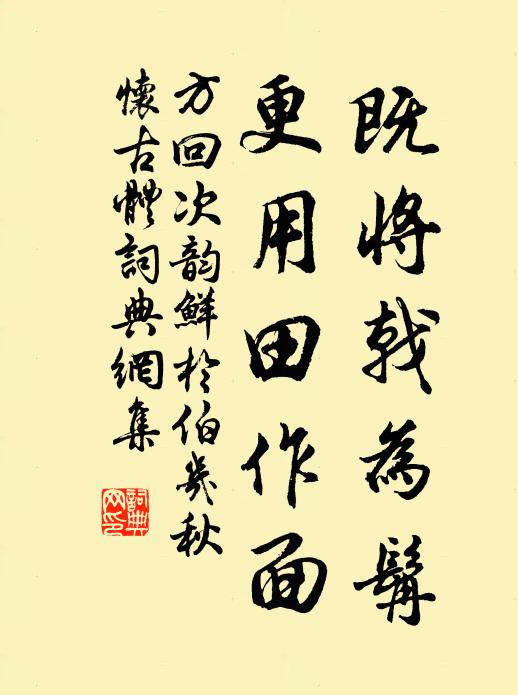 既将戟為髯
更用田作面
方回次韵鮮於伯幾秋
懷古體詞典網集
詞典網印